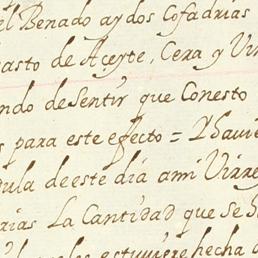 el Benado ay dos Cofadrias
gasto de Aceyte, Cera y Vin
endo de sentir que Conesto
s para este efecto = Yhavie
dula de este dia ami Virre
rias La Cantidad que se h
estuviere hecha